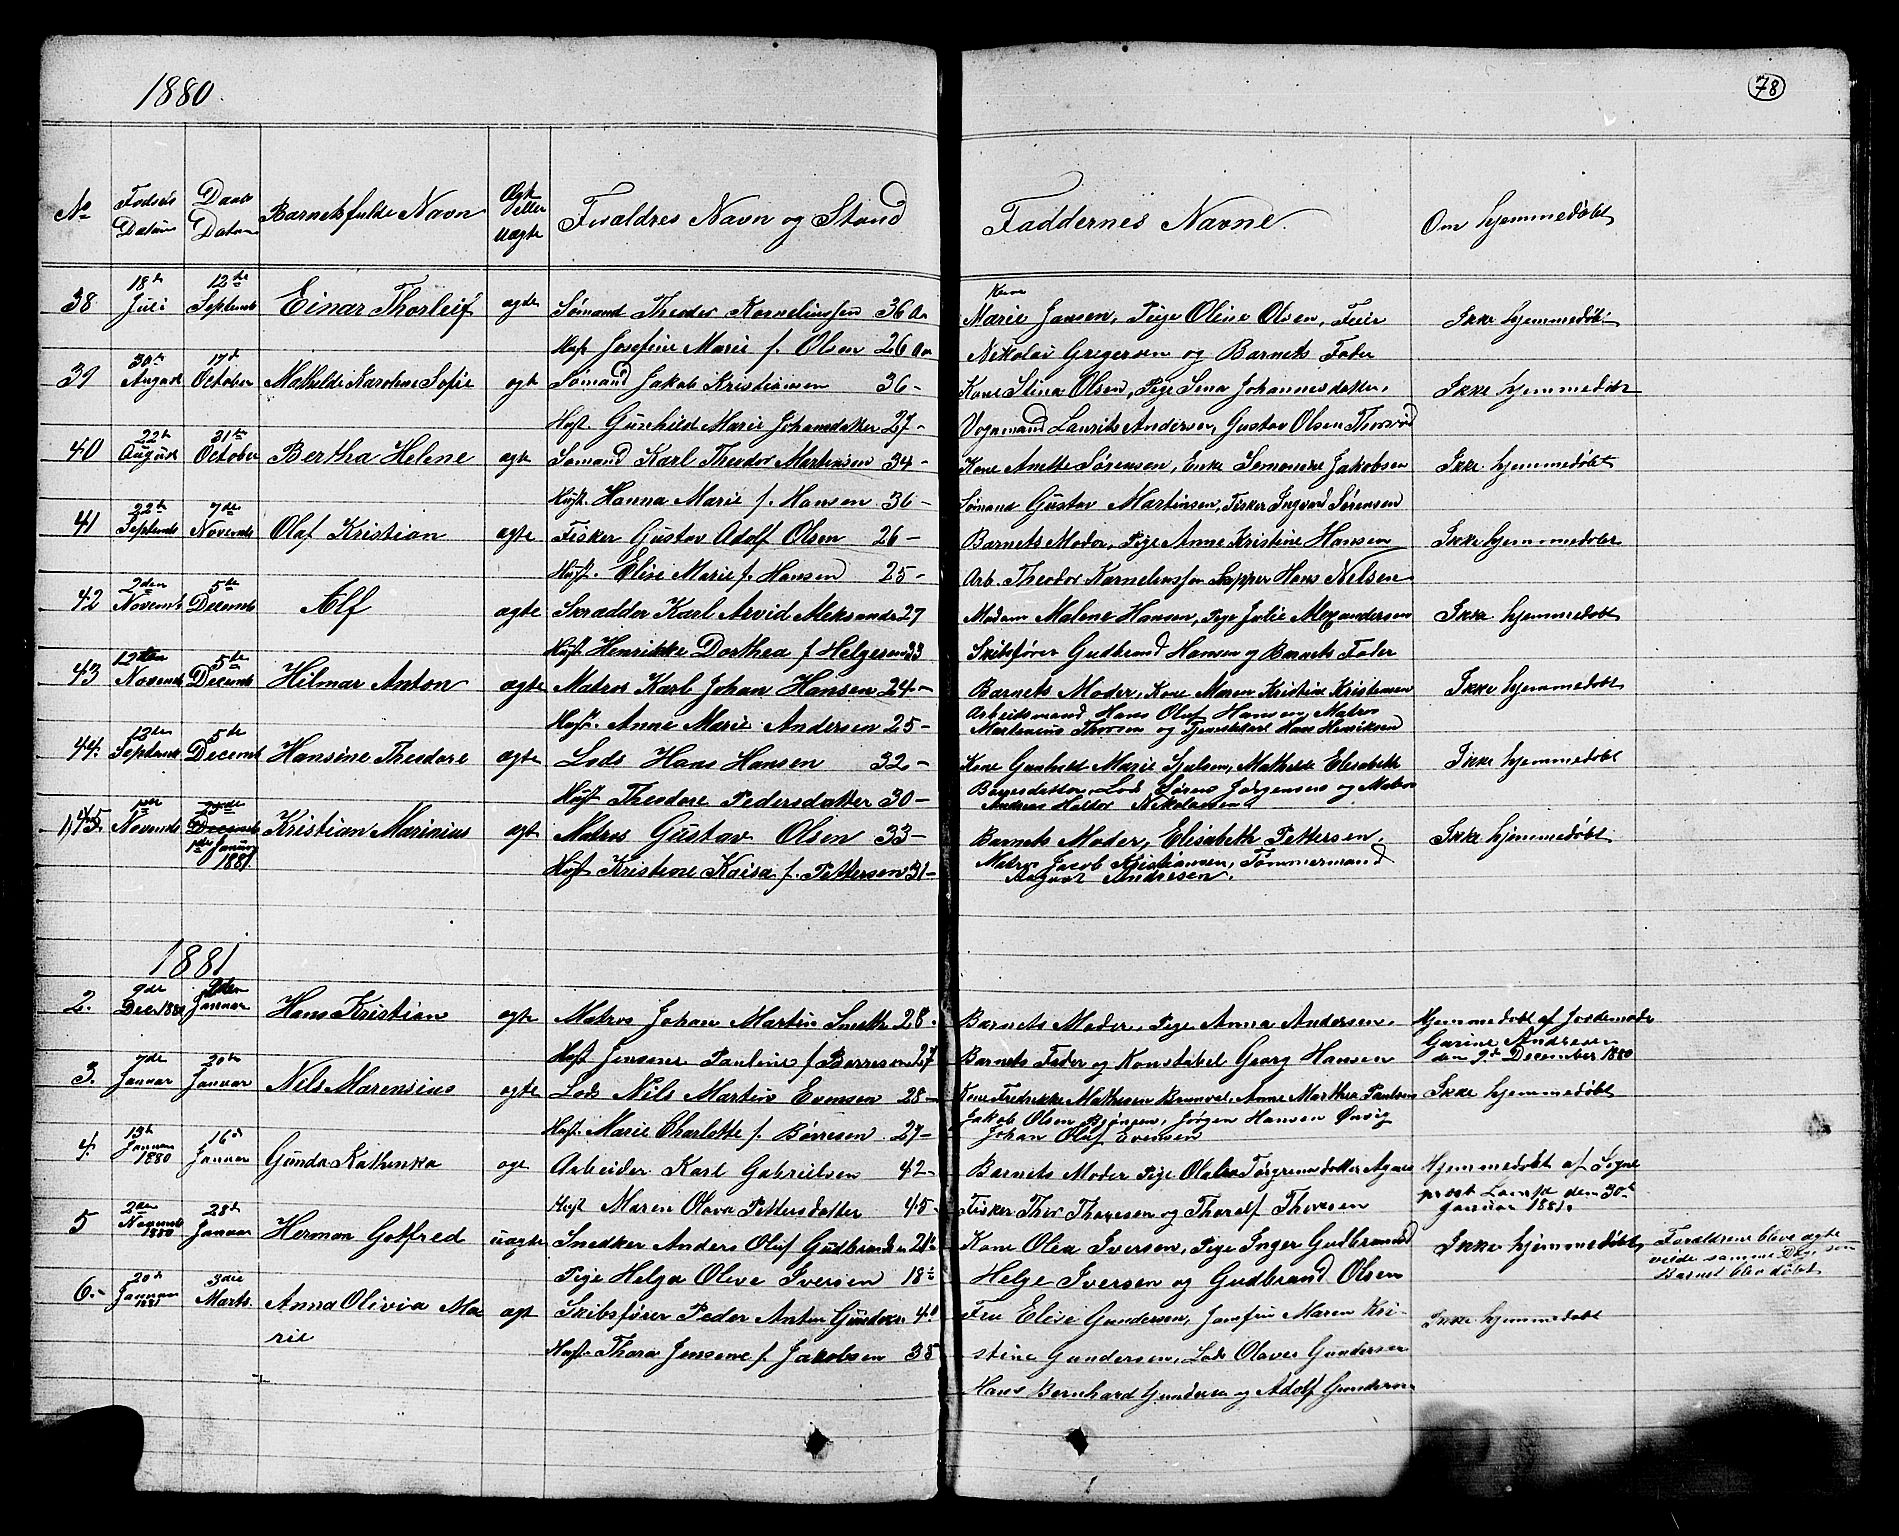 1880.
78
No Fødsels Datum Daabs Datum Barnets fulde Navn Ægte eller uægte Forældres Navn og Stand Faddernes Navne. Om hjemmedøbt
38 18de Juli 12te Septemb Einar Thorleif ægte Sømand Theodor Kornelinssen 36 Aar Kone Marie Jansen, Pige Oline Olsen, Feier Ikke hjemmedøbt
Hust Josefine Marie f. Olsen 26 Aar Nikolai Gregersen og Barnets Fader
39 30te August 17d October Mathilde Karoline Sofie ægt Sømand Jakob Kristiansen 36- Kone Stina Olsen, Pige Sena Johannesdatter, Ikke hjemmedøbt
Hust. Gunhild Marie Johansdatter 27- Vognmand Laurits Andersen, Gustav Olsen
40 22de August 31te October Bertha Helene ægte Sømand Karl Theodor Martinsen 34- Kone Anette Sørensen, Enke Jakobsen Ikke hjemmedøbt
Hust. Hanna Marie f. Hansen 36- Sømand Gustav Martinsen, Fisker Ingvad Sørensen
41 22de Septemb 7de Novemb Olaf Kristian ægte Fisker Gustav Adolf Olsen 26- Barnets Moder, Pige Anne Kristine Hansen Ikke hjemmedøbt
Hust. Elise Marie f. Hansen 25- Arb. Theodor Kornelinssen Hans Nilsen
42 2den Novemb 5te Decemb Alf ægte Skrædder Karl Arvid Aleksander 27 Madam Malene Hansen, Pige Julie Alexandersen Ikke hjemmedøbt
Hust Henrikke Dorthea f Helgesen 33 Skibsfører Gudbrand Hansen og Barnets Fader
43 12ten Novemb 5te Decemb Hilmar Anton ægte Matros Karl Johan Hansen 24- Barnets Moder, Kone Maren Kristine Kristensen Ikke hjemmedøbt
Hust. Anne Marie Andersen 25- Arbeidsmand Hans Oluf Hansen, Matros
Martinius Thorsen og Tjenestekarl Hans Henriksen
44. 13de Septemb 5te Decemb Hansine Theodore ægte Lods Hans Hansen 32- Kone Gunhild Marie Mathilde Elisabeth Ikke hjemmedøbt
Hust Theodore Pedersdatter 30- Lods Søren Jørgensen og Matros
Andreas Nikolaisen
1, 45. 1ste Novemb Decemb 1ste Januar 1881 Kristian Marinius ægt Matros Gustav Olsen 33- Barnets Moder, Elisabeth Pettersen Ikke hjemmedøbt
Hust Kristine Kaisa f. Pettersen 31- Matros Jacob Kristiansen, Tømmermand
August Andresen.
1881
2. 9de Dec 1880 Januar Hans Kristian ægte Matros Johan Martin Smith 28. Barnets Moder, Pige Anna Andersen, Hjemmedøbt af Jordemoder
Hust Jensene Pauline f Borresen 27 Barnets Fader og Konstabel Georg Hansen Garine Andresen
den 9de December 1880
3. 7de Januar 20de Januar Nils Marensius ægte Lods Nils Martin Evensen 28- Kone Fredrikke Mathisen Anne Marthea Paulsen Ikke hjemmedøbt
Hust. Marie Charlotte f. Børresen 27- Jakob Olsen Jørgen Hansen Ørvig
Johan Oluf Evensen
4. 13de Januar 1880 16d Januar Gunda Kathinka ægt Arbeider Karl Gabrielsen 42- Barnets Moder Pige Hjemmedøbt af Sogne
Hust Maren Olava Pettersdatter 45- Fisker Thor Thoresen og Tharalf Thoresen prest den 30te
Januar 1881.
5 2den Novemb 1880 28d Januar Herman Gotfred uægte Snedker Anders Oluf Gudbrandsen 21 Kone Olea Iversen, Pige Inger Gudbrandsd Ikke hjemmedøbt Forældrene bleve ægte
Pige Helga Olive Iversen 18 Helge Iversen og Gudbrand Olsen viede samme Dag som
Barnet blev døbt
6.- 20d Januar 1881 3die Marts. Anna Olivia Ma- ægt Skibsfører Peder Anton Gunders. 40 Fru Elise Gundersen, Jomfru Maren Kri- Ikke hjemmedøbt
rie Hust. Thora Jensene f. Jakobsen 35 stine Gundersen, Lods Olaves Gundersen
Hans Bernhard Gundersen og Adolf Gundersen